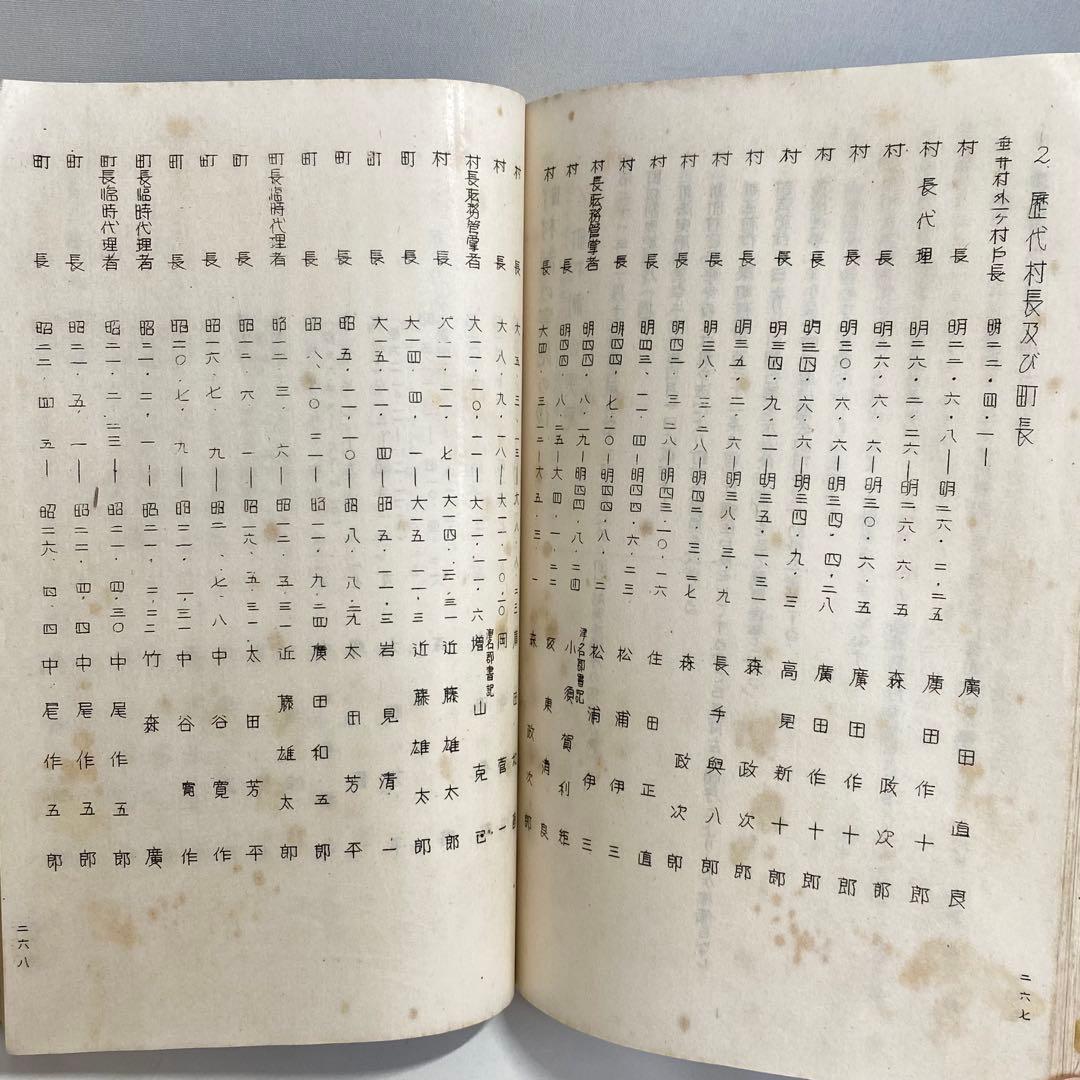 2. 歴代村長及び町長
村外一ヶ村戸長 明二二・四・一― 廣田直良
村長 明二二・六・八―明二六・二・二五 廣田作十郎
村長代理 明二六・二・二六―明二六・六・五 森政次郎
村長 明二六・六・六―明三〇・六・五 廣田作十郎
村長 明三〇・六・六―明三四・四・二八 廣田作十郎
村長 明三四・六・六―明三四・九・三 高見新十郎
村長 明三四・九・一一―明三五・一・三一 森政次郎
村長 明三五・二・六―明三八・三・九 長手與八郎
村長 明三八・三・二八―明四二・三・二七 森政次郎
村長 明四二・三・二八―明四三・一〇・一六 住田正直
村長 明四三・一一・四―明四四・六・二三 松浦伊三
村長 明四四・七・一〇―明四四・八・二 松浦伊三
村長職務管掌者 明四四・八・一九―明四四・八・二四 津名郡書記 小須賀利矩
村長 明四四・八・二五―大四・一・二二 坂東清良
村長 大四・三・一二―大五・三・一 森政次郎
二六七
村長 大五・三・一三―大八・八・二三
村長 大八・九・一八―大一一・一〇・一〇 岡一
村長職務管掌者 大一一・一〇・一一―大一一・一一・六 津名郡書記 増山克己
村長 大一一・一一・七―大一四・三・三一 近藤雄太郎
町長 大一四・四・一―大一五・一一・三 近藤雄太郎
町長 大一五・一一・四―昭五・一一・三 岩見清一
町長 昭五・一一・一〇―昭八・八・二九 太田芳平
町長 昭八・一〇・三一―昭一二・九・二四 廣田和五郎
町長臨時代理者 昭一二・三・六―昭一二・五・三一 近藤雄太郎
町長 昭一二・六・一―昭一六・五・三一 太田芳平
町長 昭一六・七・九―昭二〇・七・八 中谷寛作
町長 昭二〇・七・九―昭二一・一・三一 中谷寛作
町長臨時代理者 昭二一・二・一―昭二一・二・二二 竹森廣
町長臨時代理者 昭二一・二・二三―昭二一・四・三〇 中尾作五郎
町長 昭二一・五・一―昭二二・四・四 中尾作五郎
町長 昭二二・四・五―昭二六・四・四 中尾作五郎
二六八